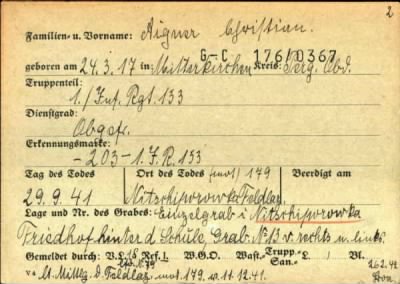 2
Familien- u. Vorname: Aigner Christian.
G-C 176/0367
geboren am 24.3.17 in: Mitterkirchen Kreis: Perg. Obd.
Truppenteil:
1./Inf. Rgt. 133
Dienstgrad:
Obgefr.
Erkennungsmarke:
-203-1.J.R.133
Tag des Todes Ort des Todes (mot) 179 Beerdigt am
29.9.41 Nitschiporowka Feldlaz.
Lage und Nr. des Grabes: Einzelgrab i. Nitschiporowka
Friedhof hinter d. Schule, Grab Nr. 13 v. rechts n. links.
Gemeldet durch: V.L. Ref. 1. W.G.O. Watt-Trupp. /L. / Vl.
San.-
lt. Mittlg. d. Feldlaz. mot. 179 v. 11.12.41.
26.2.42